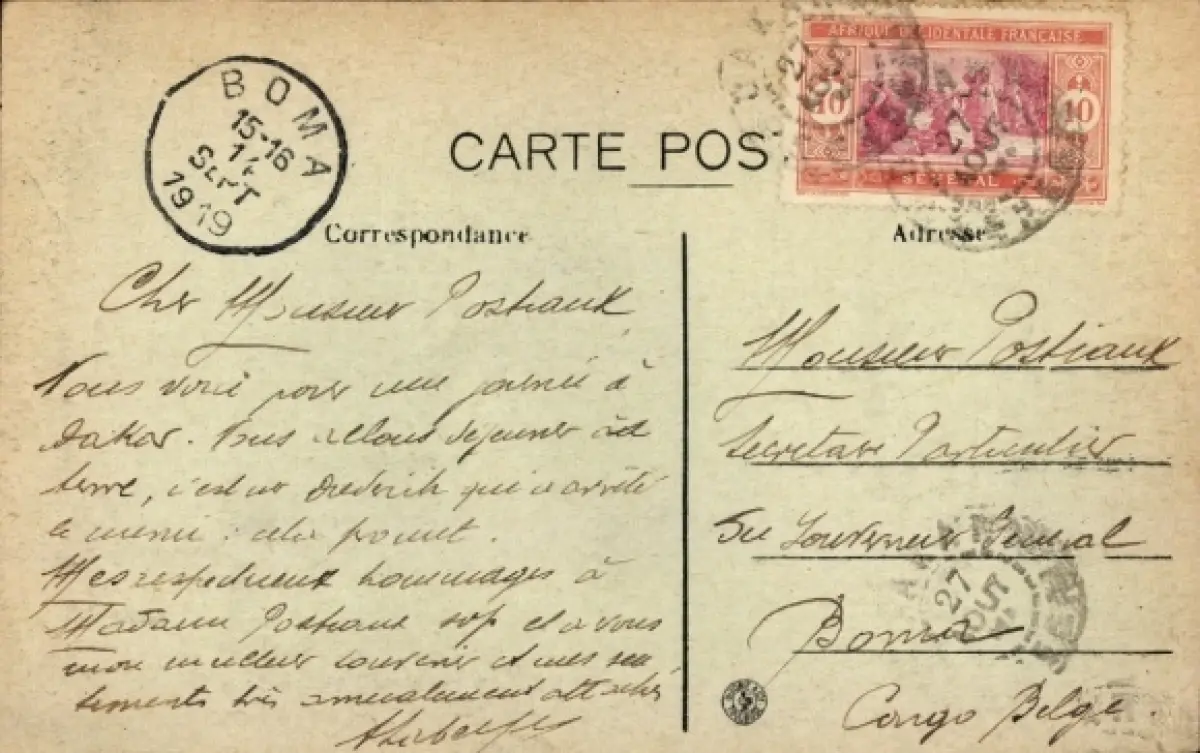 BOMA
15-16
14
SEPT
1919
DAKAR
27
AOUT
AFRIQUE OCCIDENTALE FRANÇAISE
10
10
SÉNÉGAL
CARTE POS
Correspondance
Adresse
Cher Monsieur Postiaux
Nous voici pour une journée à
Dakar. Nous allons déjeuner à
terre, c'est qui a arrêté
le menu : cela promet.
Mes respectueux hommages à
Madame Postiaux et à vous
mon meilleur souvenir et mes sen
timents très amicalement attachés
Monsieur Postiaux
Secrétaire Particulier
Du Gouverneur Général
Boma
Congo Belge.
27
AOUT